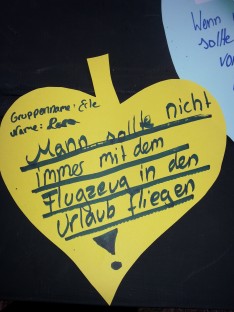 Gruppenname: Eile
Name: Lara
Mann sollte nicht
immer mit dem
Flugzeug in den
Urlaub fliegen
!
Wenn
sollte
vo